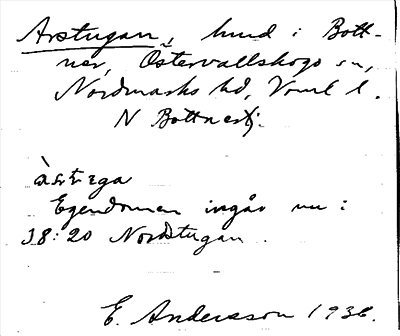 Arstugan, hmd i Bott-
ner, Östervallskogs sn,
Nordmarks hd, Vrml l.
N Bottnestj.
àrstega
Egendomen ingår nu i
38:20 Nordstugan.
E. Andersson 1936.